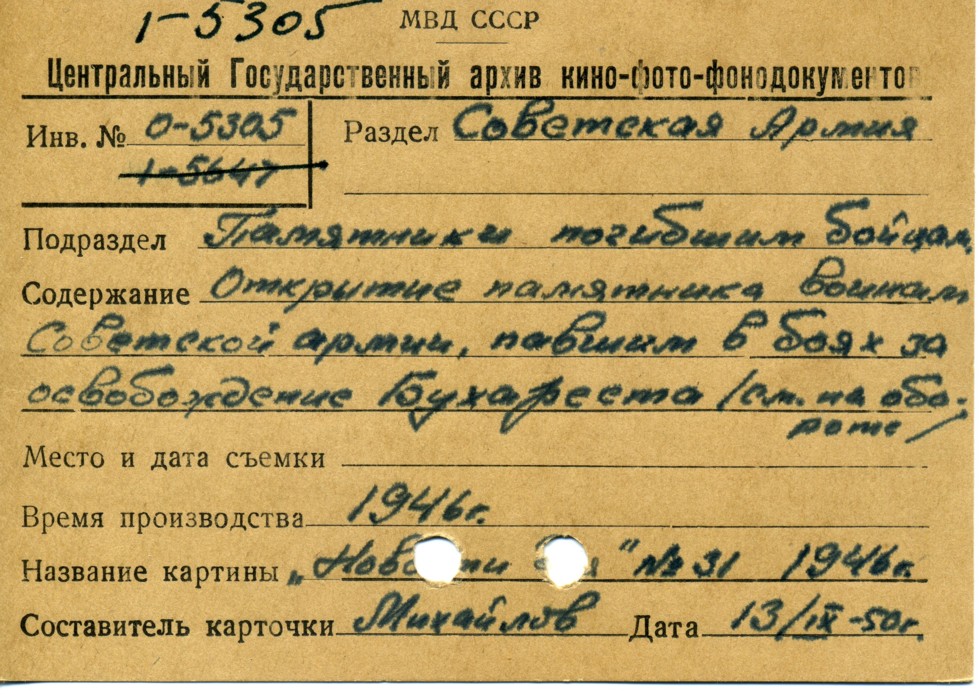 1-5305 МВД СССР
Центральный Государственный архив кино-фото-фонодокументов
Инв. № 0-5305 Раздел Советская Армия
1-5647
Подраздел Памятники погибшим бойцам
Содержание Открытие памятника воинам
Советской армии, павшим в боях за
освобождение Бухареста /см. на обо-
роте/
Место и дата съемки
Время производства 1946г.
Название картины „ " № 31 1946г.
Составитель карточки Михайлов Дата 13/IX-50г.